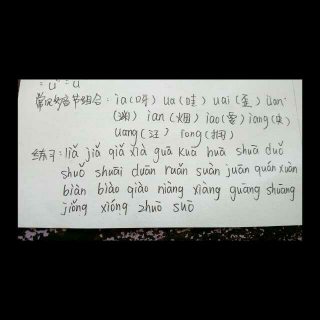 常见的音节组合:ia(呀) ua(哇) uai(歪) üan
(渊) ian(烟) iao(要) iang(央)
uang(汪) iong(拥)
练习:liǎ jiǎ qiǎ xià guā kuā huā shuā duǒ
shuǒ shuāi duān ruǎn suàn juān quán xuàn
biàn biào qiào niàng xiàng guāng shuāng
jiǒng xióng zhuō suō